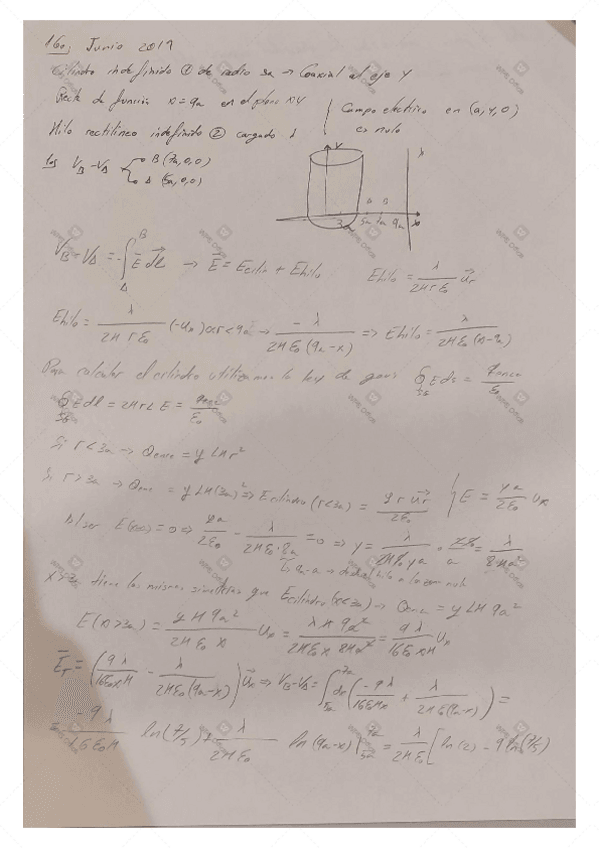 16o, Junio 2019
Cilindro indefinido ① de radio 3a → Coaxial al eje Y
Recta de función x = 9a en el plano XY
Hilo rectilíneo indefinido ② cargado λ
Campo eléctrico en (a, y, 0)
es nulo
V_B - V_A
B (7a, 0, 0)
A (5a, 0, 0)
Y
A B
3a 5a 7a 9a
V_B - V_A = -∫_A^B E⃗ dl⃗ → E⃗ = E cilin + E hilo E hilo = λ/(2πrε₀) u⃗r
E hilo = λ/(2πrε₀) (-u_x) x < 9a → -λ/(2πε₀(9a-x)) => E hilo = λ/(2πε₀(x-9a))
Para calcular el cilindro utilizamos la ley de gauss ∮ E ds = q enc/ε₀
∮ E dl = 2πrL E = q enc/ε₀
Si r < 3a → Q enc = y L π r²
Si r > 3a → Q enc = y L π (3a)² => E cilindro (r<3a) = y r u⃗r/(2ε₀) } E = y a/(2ε₀) u_x
= 0 => y a/(2ε₀) - λ/(2πε₀·8a) = 0 => y = λ/(8πa²)
x > 3a tiene la misma simetria que E cilindro (x<3a) → Q enc = y L π 9a²
E(x>3a) = y π 9a²/(2πε₀ x) u_x = λ π 9a²/(2πε₀ x 8πa²) = 9λ/(16ε₀xπ) u_x
E⃗_T = (9λ/(16ε₀xπ) - λ/(2πε₀(9a-x))) u⃗_x => V_B - V_A = ∫_5a^7a dx (-9λ/(16ε₀πx) + λ/(2πε₀(9a-x))) =
= -9λ/(16ε₀π) ln(7/5) + λ/(2πε₀) ln(9a-x)|_5a^7a = λ/(2πε₀) [ln(2) - 9 ln(7/5)